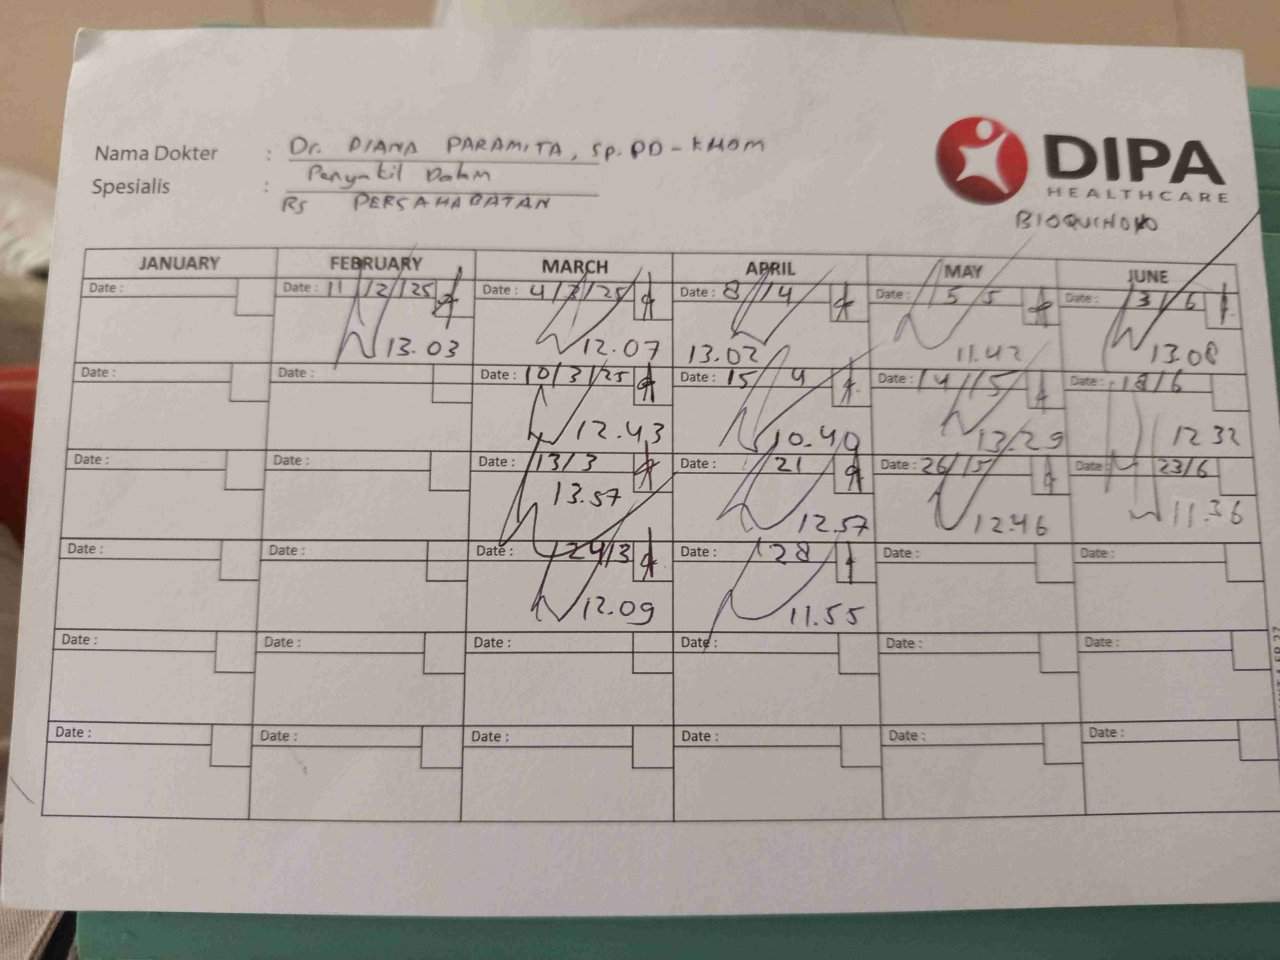 Nama Dokter : Dr. DIANA PARAMITA, Sp.PD-KHOM
Spesialis : Penyakit Dalam
RS PERSAHABATAN
DIPA
HEALTHCARE
JANUARY FEBRUARY MARCH APRIL MAY JUNE
Date : Date : 11/2/25 Date : 4/3/25 Date : 8/4 Date : 5 5 Date : 3 6
13.03 12.07 13.02 11.42 13.08
Date : Date : Date : 10/3/25 Date : 15/4 Date : 14/5 Date : 18/6
12.43 10.40 13.29 12 32
Date : Date : Date : 13/3 Date : 21 Date : 26/5 Date : 23/6
13.57 12.57 12.46 11.36
Date : Date : Date : 24/3 Date : 28 Date : Date :
12.09 11.55
Date : Date : Date : Date : Date : Date :
Date : Date : Date : Date : Date : Date :